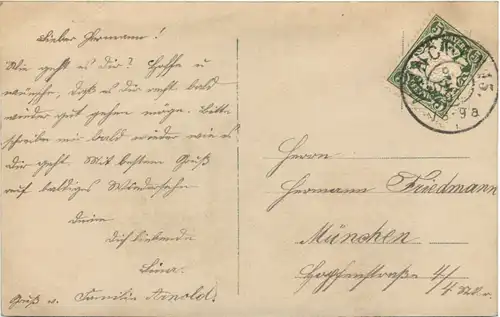 Lieber Hermann!
Wie geht es Dir? Hoffe u
wünsche, daß es Dir recht bald
wieder gut gehen möge. Bitte
schreibe mir bald wieder wie es
Dir geht. Mit besten Gruß
auf baldiges Wiedersehn
Deine
Dich liebende
Lina.
Gruß v. Familie Arnold.
Herrn
Hermann Friedmann
München
Hopfenstraße 4/
4 Stk. r.